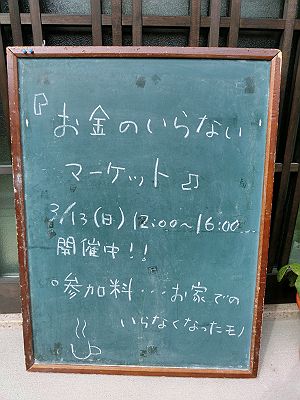 『お金のいらない
マーケット』
3/13(日)12:00~16:00...
開催中!!
○参加料...お家での
いらなくなったモノ